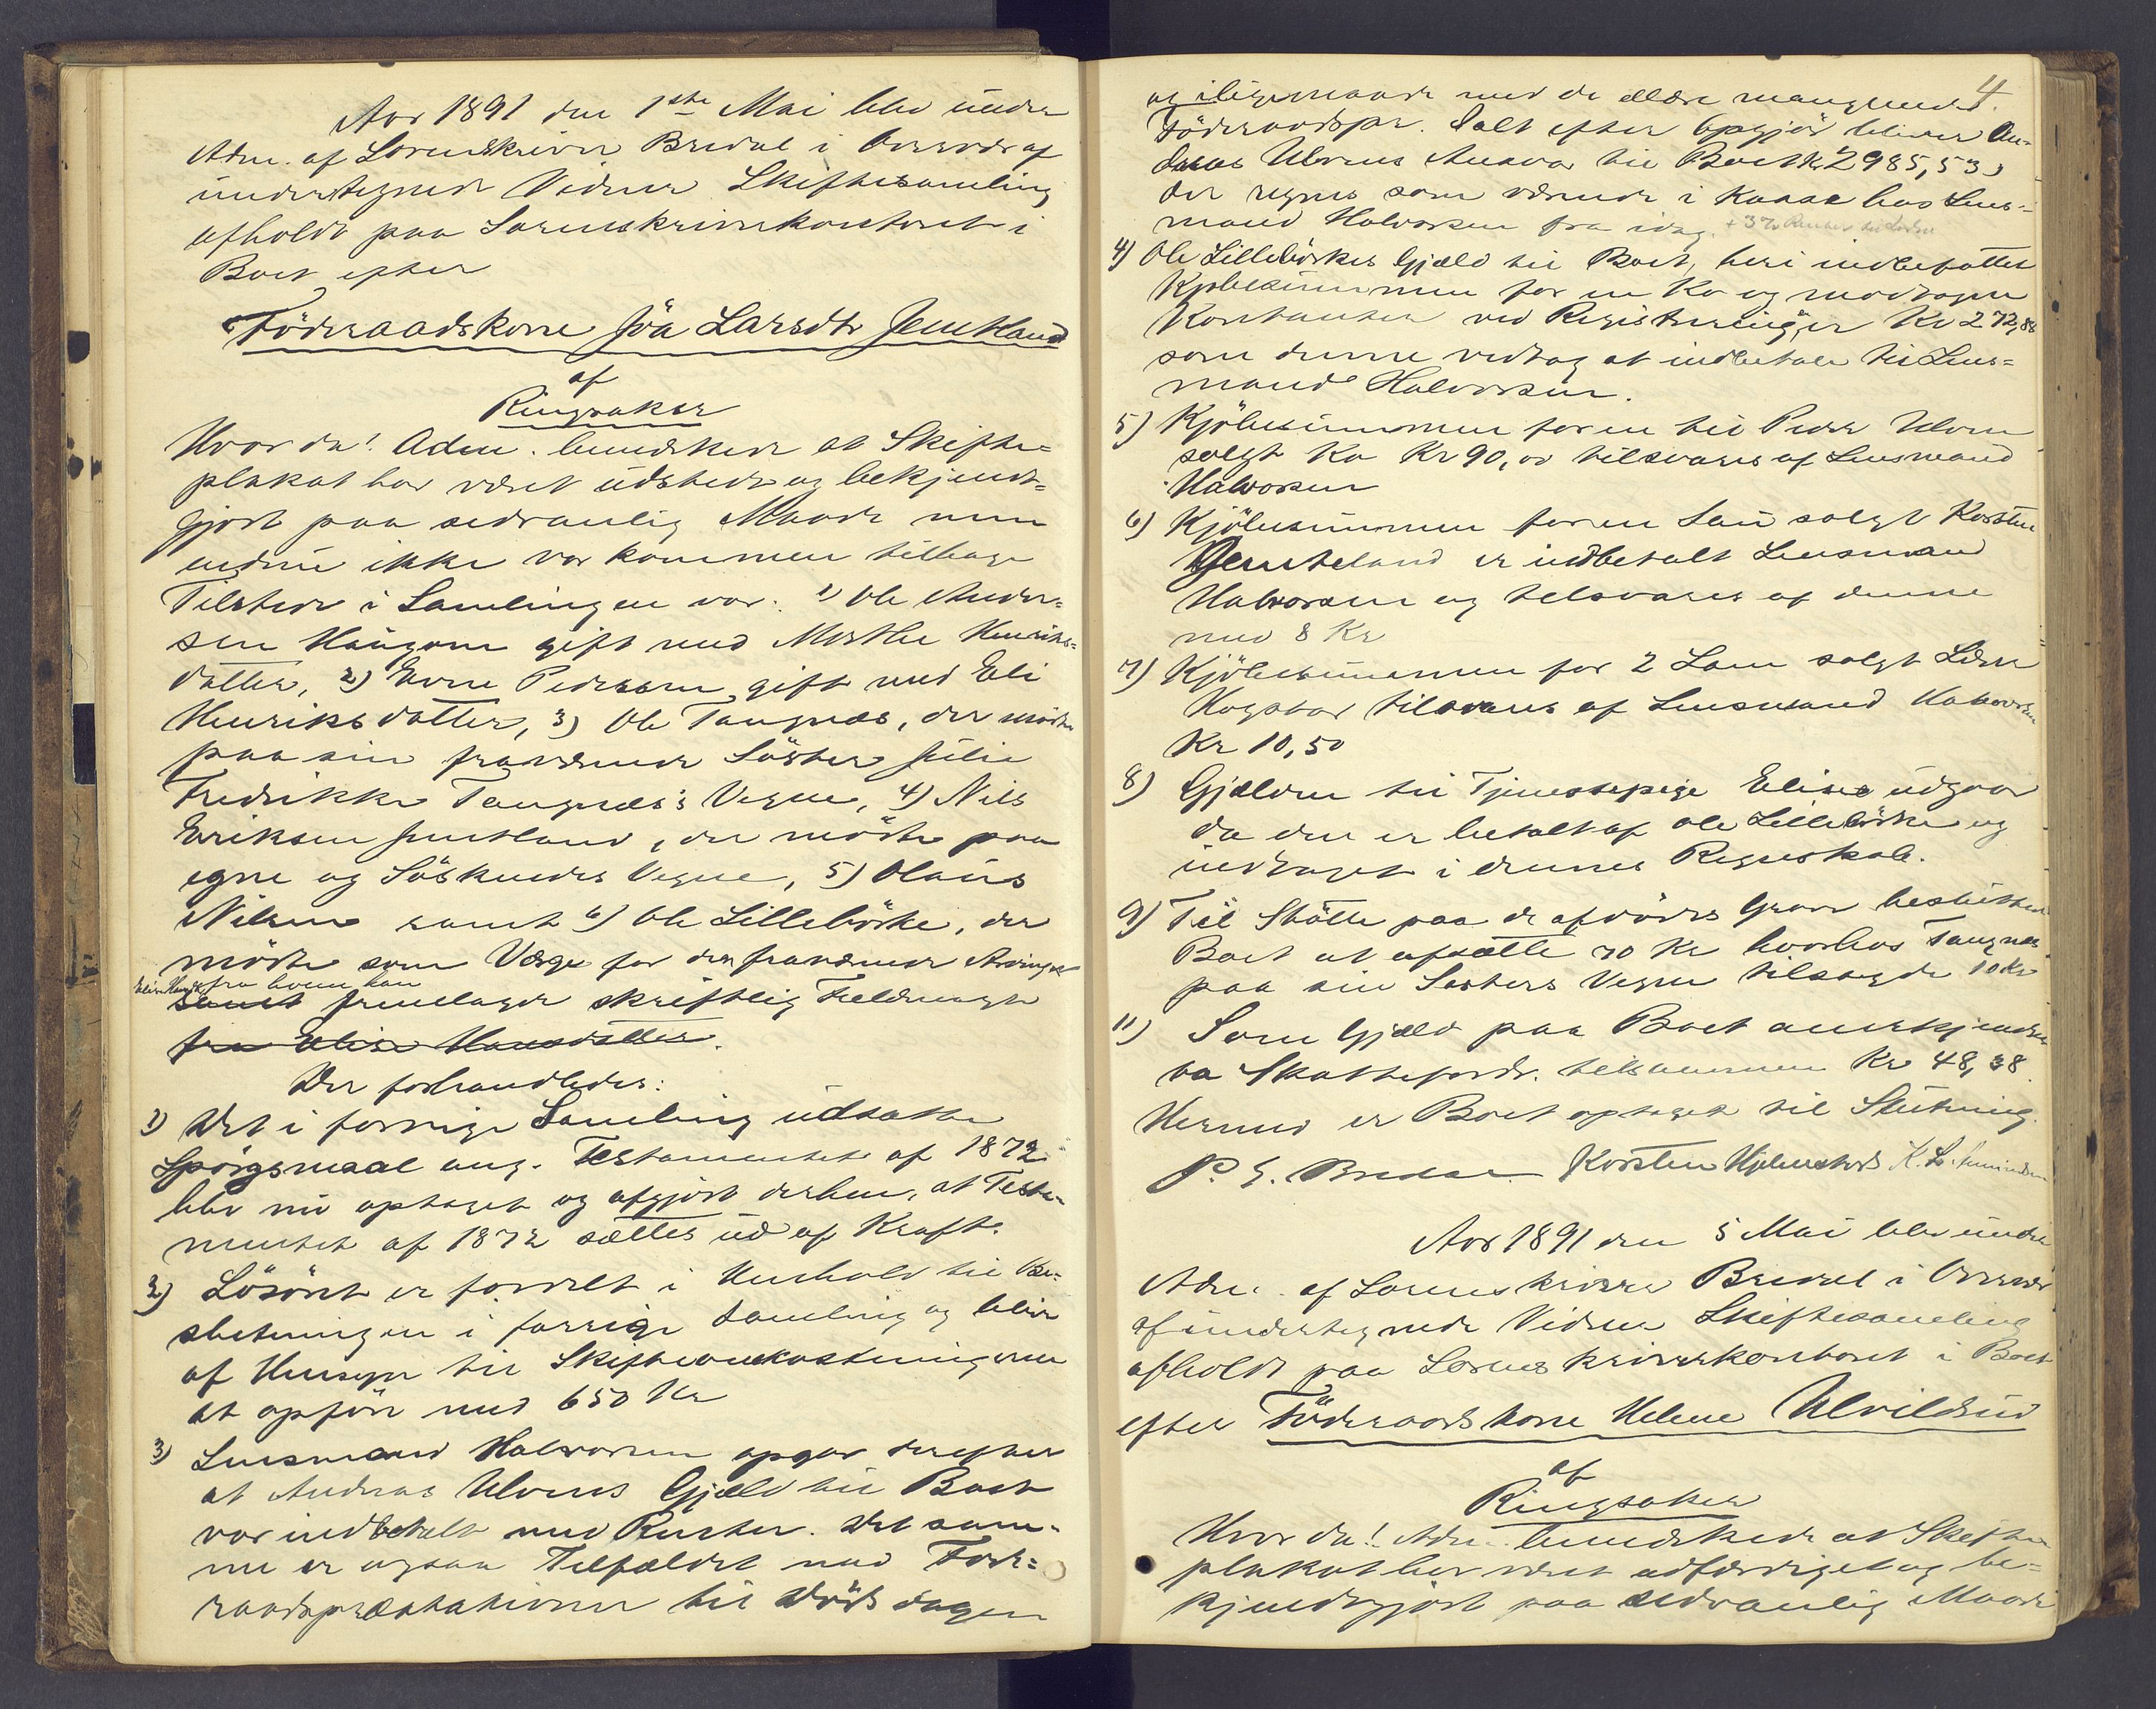 Aar 1891 den 1ste Mai blev under
Adm. af Sorenskriver Bredal i Overvær af
undertegnede Vidner Skiftesamling
afholdt paa Sorenskriverkontoret i
Boet efter
Föderaadskone Jöa Larsdtr Jemtland
af
Ringsaker
Hvor da! Adm. bemærkede at Skifte=
plakat har været udstedt og bekjendt=
gjort paa sedvanlig Maade men
endnu ikke var kommen tilbage
Tilstede i Samlingen var: 1) Ole Ander=
sen Haugom gift med Marthe Henriks=
datter, 2) Even Pedersen, gift med Eli
Henriksdatter, 3) Ole Tangnæs, der mödte
paa sin fraværende Söster Julie
Fredrikke Tangnæs's Vegne, 4) Nils
Eriksen Jemtland, der mödte paa
egne og Söskendes Vegne, 5) Olaus
Nilsen samt 6) Ole Lillebörke, der
mödte som Værge for den fraværende Arving
fra hvem han
samt fremlagde skriftlig Fuldmagt
fra Elise Hansdatter.
Der forhandledes:
1) Det i forrige Samling udsatte
Spörgsmaal ang. Testamentet af 1872
blev nu optaget og afgjort derhen, at Testa=
mentet af 1872 sættes ud af Kraft.
2) Lösöret er fordelt i Henhold til Be=
slutningen i forrige Samling og bliver
af Hensyn til Skifteomkostningerne
at opföre med 650 Kr
3) Lensmand Halvorsen opgav derefter
at Andreas Ulvens Gjæld til Boet
var indbetalt med Renter. Det sam=
me er ogsaa Tilfældet med Föde=
raadspræstationer til Dödsdagen
4.
og iligemaade med de ældre manglende
Föderaadspr. Ialt efter Opgjör bliver An=
dreas Ulvens Ansvar til Boet Kr 2985,53,
der regnes som værende i Kasse hos Lens=
mand Halvorsen fra idag. + 3% Renter
4) Ole Lillebörkes Gjæld til Boet, heri indbefattet
Kjöbesummen for en Ko og modtagen
Kontanter ved Registrering, er Kr 272,88
som denne vedtog at indbetale til Lens=
mand Halvorsen.
5) Kjöbesummen for en til Peder Ulven
solgt Ko Kr 90,00 tilsvares af Lensmand
Halvorsen
6) Kjöbesummen for en Sau solgt Karsten
Jemteland er indbetalt Lensmand
Halvorsen og tilsvares af denne
med 8 Kr
7) Kjöbesummen for 2 Lam solgt Lars
tilsvares af Lensmand Halvorsen
Kr 10,50
8) Gjælden til Tjenestepige Elise udgaar
da den er betalt af Ole Lillebörke og
indtaget i dennes Regnskab.
9) Til Stötte paa de afdödes Grav besluttede
Boet at afsætte 70 Kr hvorhos Tangnæs
paa sin Søsters Vegne tilsagde 10 Kr
11) Som Gjæld paa Boet anerkjendes
Skattefordr. tilsammen Kr 48,38.
Hermed er Boet optaget til Slutning.
P. E. Bredal Karsten Hjelmstad K. L.
Aar 1891 den 5 Mai blev under
Adm. af Sorenskriver Bredal i Overvær
af undertegnede Vidner Skiftesamling
afholdt paa Sorenskriverkontoret i Boet
efter Föderaadskone Helene Ulvildsud
af
Ringsaker
Hvor da! Adm. bemærkede at Skifte
plakat har været udfærdiget og be=
kjendtgjort paa sedvanlig Maade